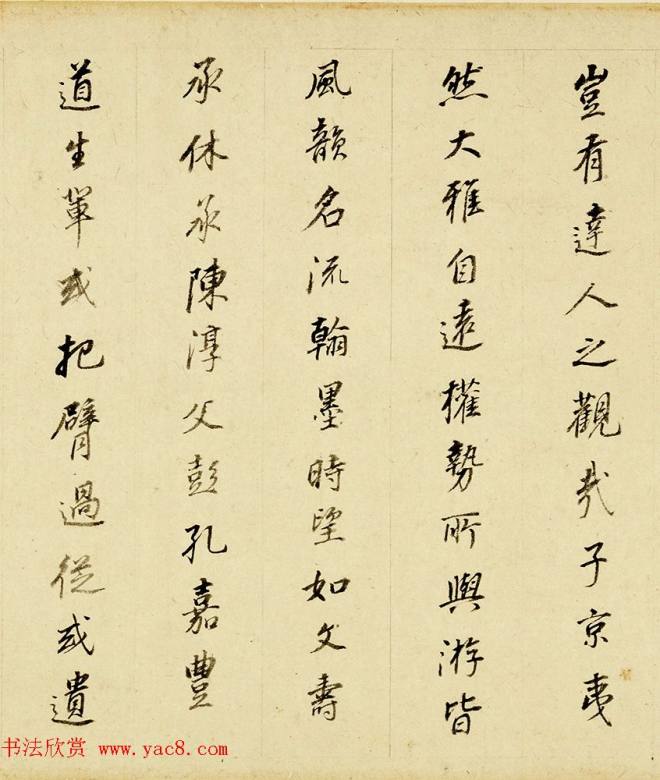 豈有達人之觀哉子京夷
然大雅自遠權勢所與游皆
風韻名流翰墨時望如文壽
承休承陳淳父彭孔嘉豐
道生軰或把臂過從或遺
书法欣赏 www.yac8.com